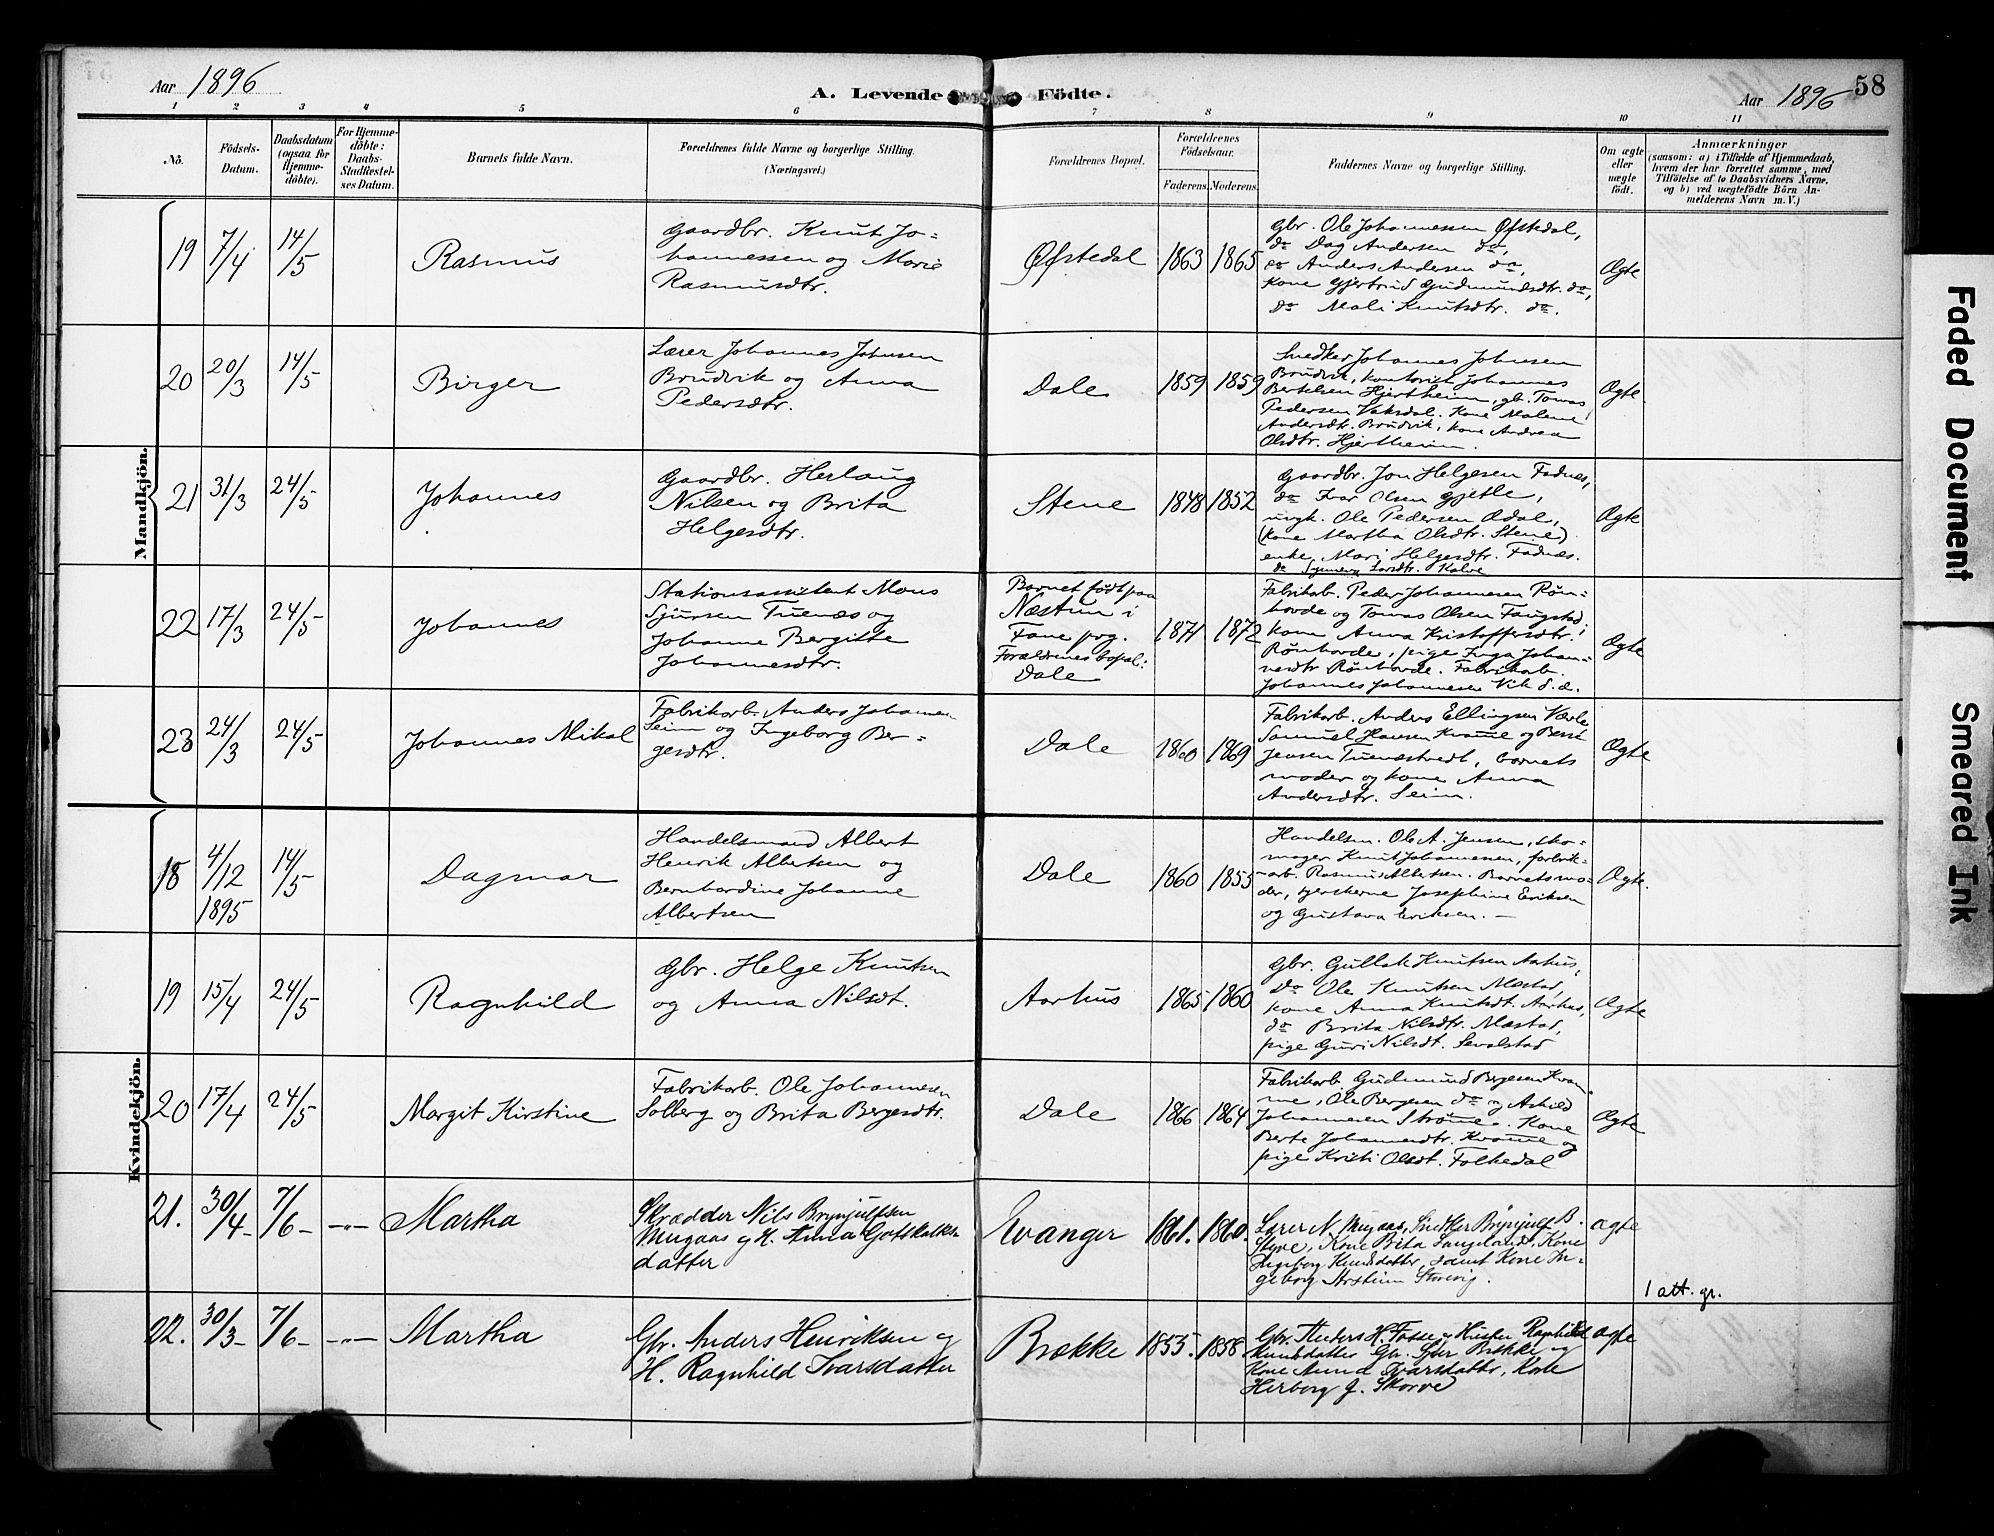 Aar 1896
A. Levende Födte.
58
Aar 1896
1 2 3 4 5 6 7 8 9 10 11
No.
Födsels-Datum.
Daabsdatum (ogsaa for Hjemme-döbte).
For Hjemme-döbte: Daabs-Stadfæstel-ses Datum.
Barnets fulde Navn.
Forældrenes fulde Navne og borgerlige Stilling.
(Næringsvei.)
Forældrenes Bopæl.
Forældrenes Födselsaar.
Faderens. Moderens.
Faddernes Navne og borgerlige Stilling.
Om ægte eller uægte födt.
Anmærkninger
(saasom: a) i Tilfælde af Hjemmedaab,
hvem der har forrettet samme, med
Tilföielse af to Daabsvidners Navne,
og b) ved uægtefödte Börn An-
melderens Navn m. V.)
Mandkjön.
19 7/4 14/5 Rasmus
Gaardbr. Knut Jo-
hannessen og Marie
Rasmusdtr.
Øfstedal 1863 1865
Gbr. Ole Johannessen Øfstedal,
do Dag Andersen do,
do Anders Andersen do,
Kone Gjertrud Gudmundsdtr. do,
do Mali Knutsdtr. do.
Ægte
20 20/3 14/5 Birger
Lærer Johannes Johnsen
Brudvik og Anna
Pedersdtr.
Dale 1859 1859
Snedker Johannes Johnsen
Brudvik, kontorist Johannes
Bertelsen Hjertheim, gb. Tomas
Pedersen Vaksdal. Kone Malene
Andersdtr. Brudvik, kone Andrea
Olsdtr. Hjertheim.
Ægte
21 31/3 24/5 Johannes
Gaardbr. Herlaug
Nilsen og Brita
Helgesdtr.
Stene 1848 1852
Gaardbr. Jon Helgesen Fadnes,
do Ivar Olsen Gjetle,
ungk. Ole Pedersen Ødal,
(kone Martha Olsdtr. Stene)
enke Mari Helgesdtr. Fadnæs.
do Synneva Larsdtr. Kalve
Ægte
22 17/3 24/5 Johannes
Stationsassistent Mons
Sjursen Tuenæs og
Johanne Bergitte
Johannesdtr.
Barnet født paa
Næstun i
Fane prg.
Forældrenes bopæl:
Dale
1871 1872
Fabrikarb. Peder Johannesen Røn-
hovde og Tomas Olsen Faugstad,
kone Anna Kristoffersdtr.
Rønhovde, pige Inga Johan-
nesdtr Rønhovde. Fabrikarb.
Johannes Johannesen Vik s.d.
Ægte
23 24/3 24/5 Johannes Mikal
Fabrikarb. Anders Johannesen
Seim og Ingeborg Ber-
gesdtr.
Dale 1860 1869
Fabrikarb. Anders Ellingsen
Samuel Hansen Kvamme og
Jensen barnets
moder og kone Anna
Andersdtr. Seim.
Ægte
Kvindekjön.
18 4/12 1895 14/5 Dagmar
Handelsmand Albert
Henrik Albertsen og
Bernhardine Johanne
Albertsen
Dale 1860 1855
Handelsm. Ole A. Jensen, sko-
mager Knut Johannessen, fabrik-
arb. Rasmus Albertsen. Barnets mo-
der, Josephine Eriksen
og Gustava Eriksen. —
Ægte.
19 15/4 24/5 Ragnhild
Gbr. Helge Knutsen
og Anna Nilsdt.
Aarhus 1865 1860
Gbr. Gullak Knutsen Aarhus,
do Ole Knutsen Mæstad,
kone Anna Knutsdt. Aarhus,
do Brita Nilsdtr. Mæstad,
pige Guri Nilsdt. Sevalstad
Ægte
20 17/4 24/5 Margit Kirstine
Fabrikarb. Ole Johannesen
Solberg og Brita Bergesdtr.
Dale 1866 1864
Fabrikarb. Gudmund Bergesen Kvam-
me, Ole Bergesen do og Askild
Johannesen Strømme. Kone
Berte Johannesdtr. Kvamme og
pige Kristi Olsdt. Folkedal
Ægte
21. 30/4- 7/6- -"- Martha
Skrædder Nils Brynjulfsen
Mugaas og H. Anna Gotskalks-
datter
Evanger 1861. 1860.
Lærer N. Mugaas, Snedker Brynjulf B.
Styve, Kone Brita Langeland, Kone
Ingeborg Knudsdatter, samt Kone In-
geborg
ægte
1 att. gr.
22. 30/3- 7/6- -"- Martha
Gbr. Anders Henriksen og
H. Ragnhild Ivarsdatter
Brække 1855. 1858.
Gbr. Anders H. Fosse og Hustru Ragnhild
Knudsdatter Gbr. Sjur Brække og
Kone Ivarsdatter, Kone
Herborg J. Skorve
ægte
Faded Document
Smeared Ink